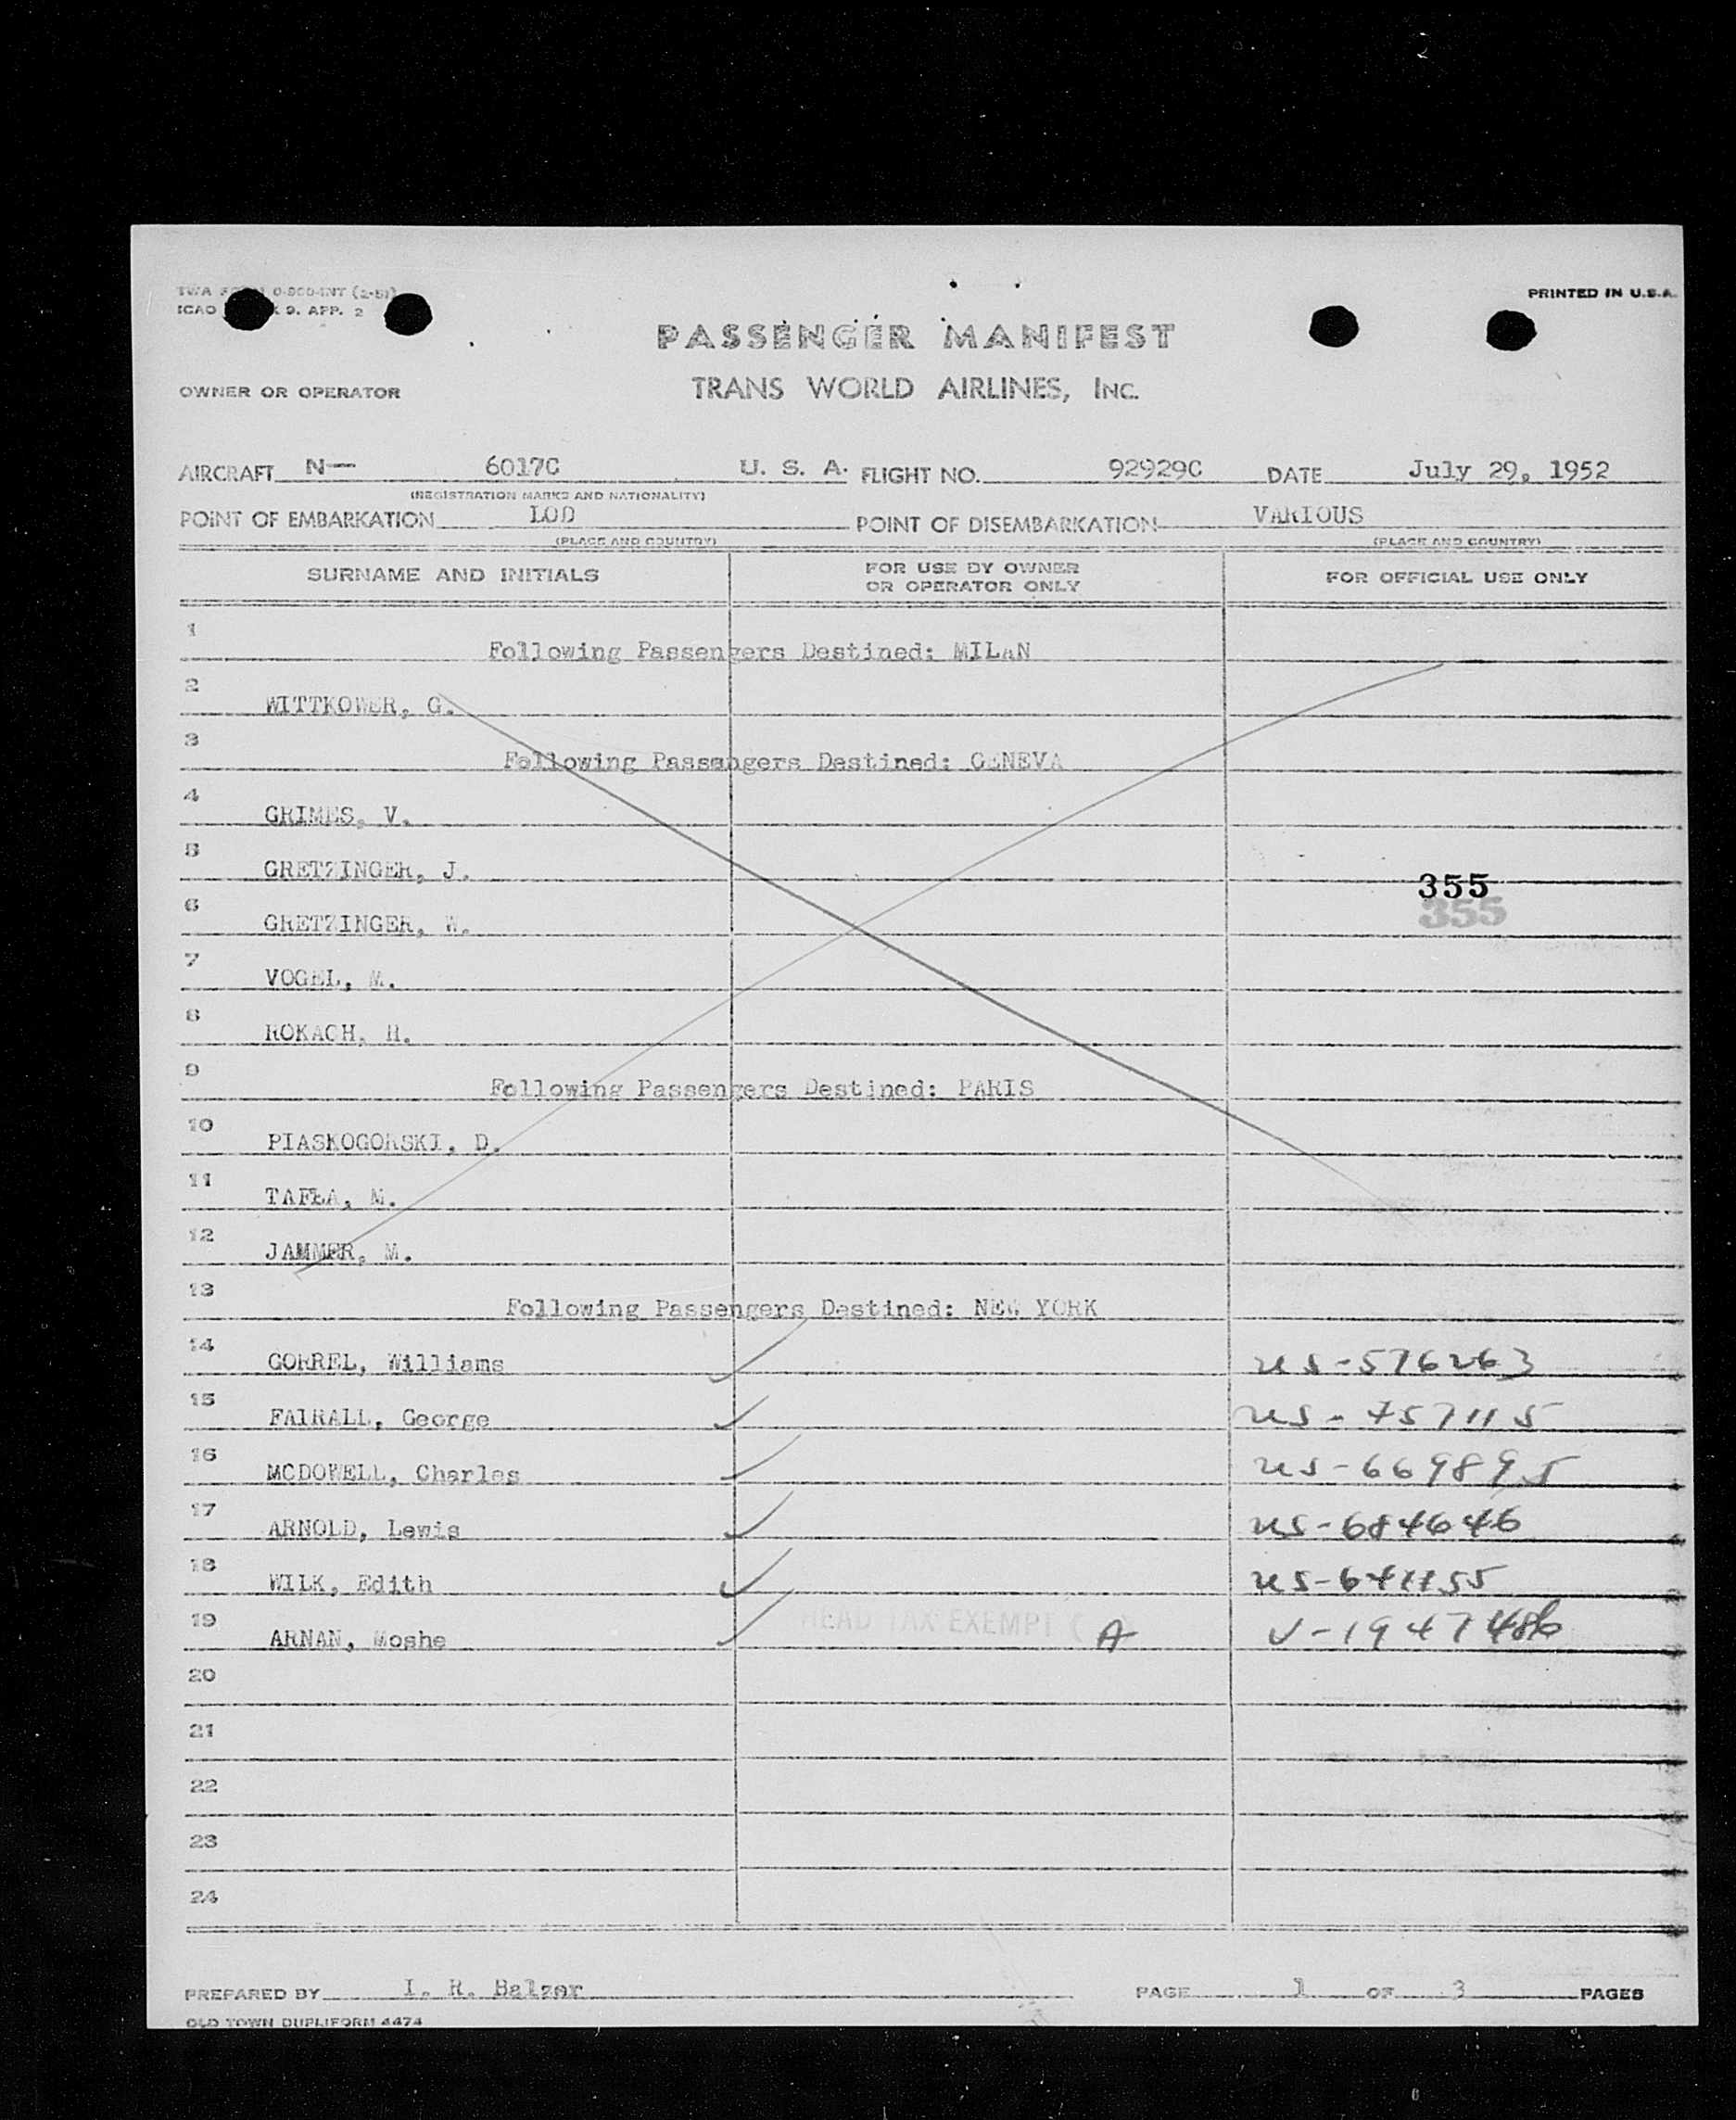 TWA FORM 0-900-INT (2-51) PRINTED IN U.S.A.
ICAO 9. APP. 2
PASSENGER MANIFEST
OWNER OR OPERATOR TRANS WORLD AIRLINES, INC.
AIRCRAFT N— 6017C U. S. A. FLIGHT NO. 92929C DATE July 29, 1952
(REGISTRATION MARKS AND NATIONALITY)
POINT OF EMBARKATION LOD POINT OF DISEMBARKATION VARIOUS
(PLACE AND COUNTRY) (PLACE AND COUNTRY)
SURNAME AND INITIALS FOR USE BY OWNER OR OPERATOR ONLY FOR OFFICIAL USE ONLY
1 Following Passengers Destined: MILAN
2 WITTKOWER, G.
3 Following Passengers Destined: GENEVA
4 GRIMES, V.
5 GRETZINGER, J. 355
6 GRETZINGER, W. 355
7 VOGEL, M.
8 ROKACH, H.
9 Following Passengers Destined: PARIS
10 PIASKOGORSKI, D.
11 TAFLA, M.
12 JAMMER, M.
13 Following Passengers Destined: NEW YORK
14 CORREL, Williams US-576263
15 FAIRALL, George US-757115
16 MCDOWELL, Charles US-669895
17 ARNOLD, Lewis US-684646
18 WILK, Edith
19 ARNAN, Moshe HEAD TAX EXEMPT ( A ) V-1947486
20
21
22
23
24
PREPARED BY I. R. Balzer PAGE 1 OF 3 PAGES
OLD TOWN DUPLIFORM 4474